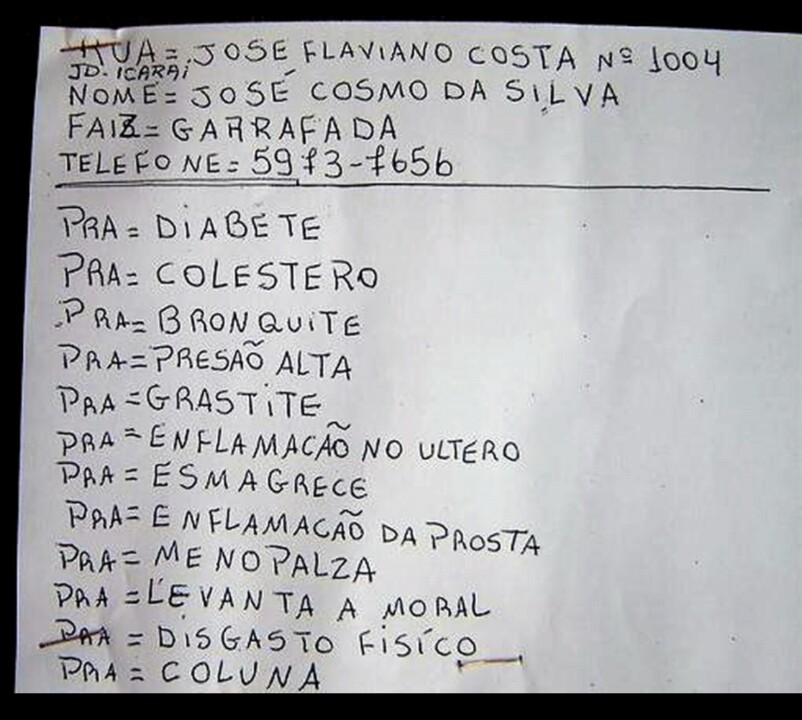 RUA = JOSE FLAVIANO COSTA Nº 1004
JD. ICARAI
NOME = JOSÉ COSMO DA SILVA
FAIZ = GARRAFADA
TELEFONE = 5973-7656
PRA = DIABETE
PRA = COLESTERO
PRA = BRONQUITE
PRA = PRESÃO ALTA
PRA = GRASTITE
PRA = ENFLAMACÃO NO ULTERO
PRA = ESMAGRECE
PRA = ENFLAMACÃO DA PROSTA
PRA = MENOPALZA
PRA = LEVANTA A MORAL
PRA = DISGASTO FISÍCO
PRA = COLUNA